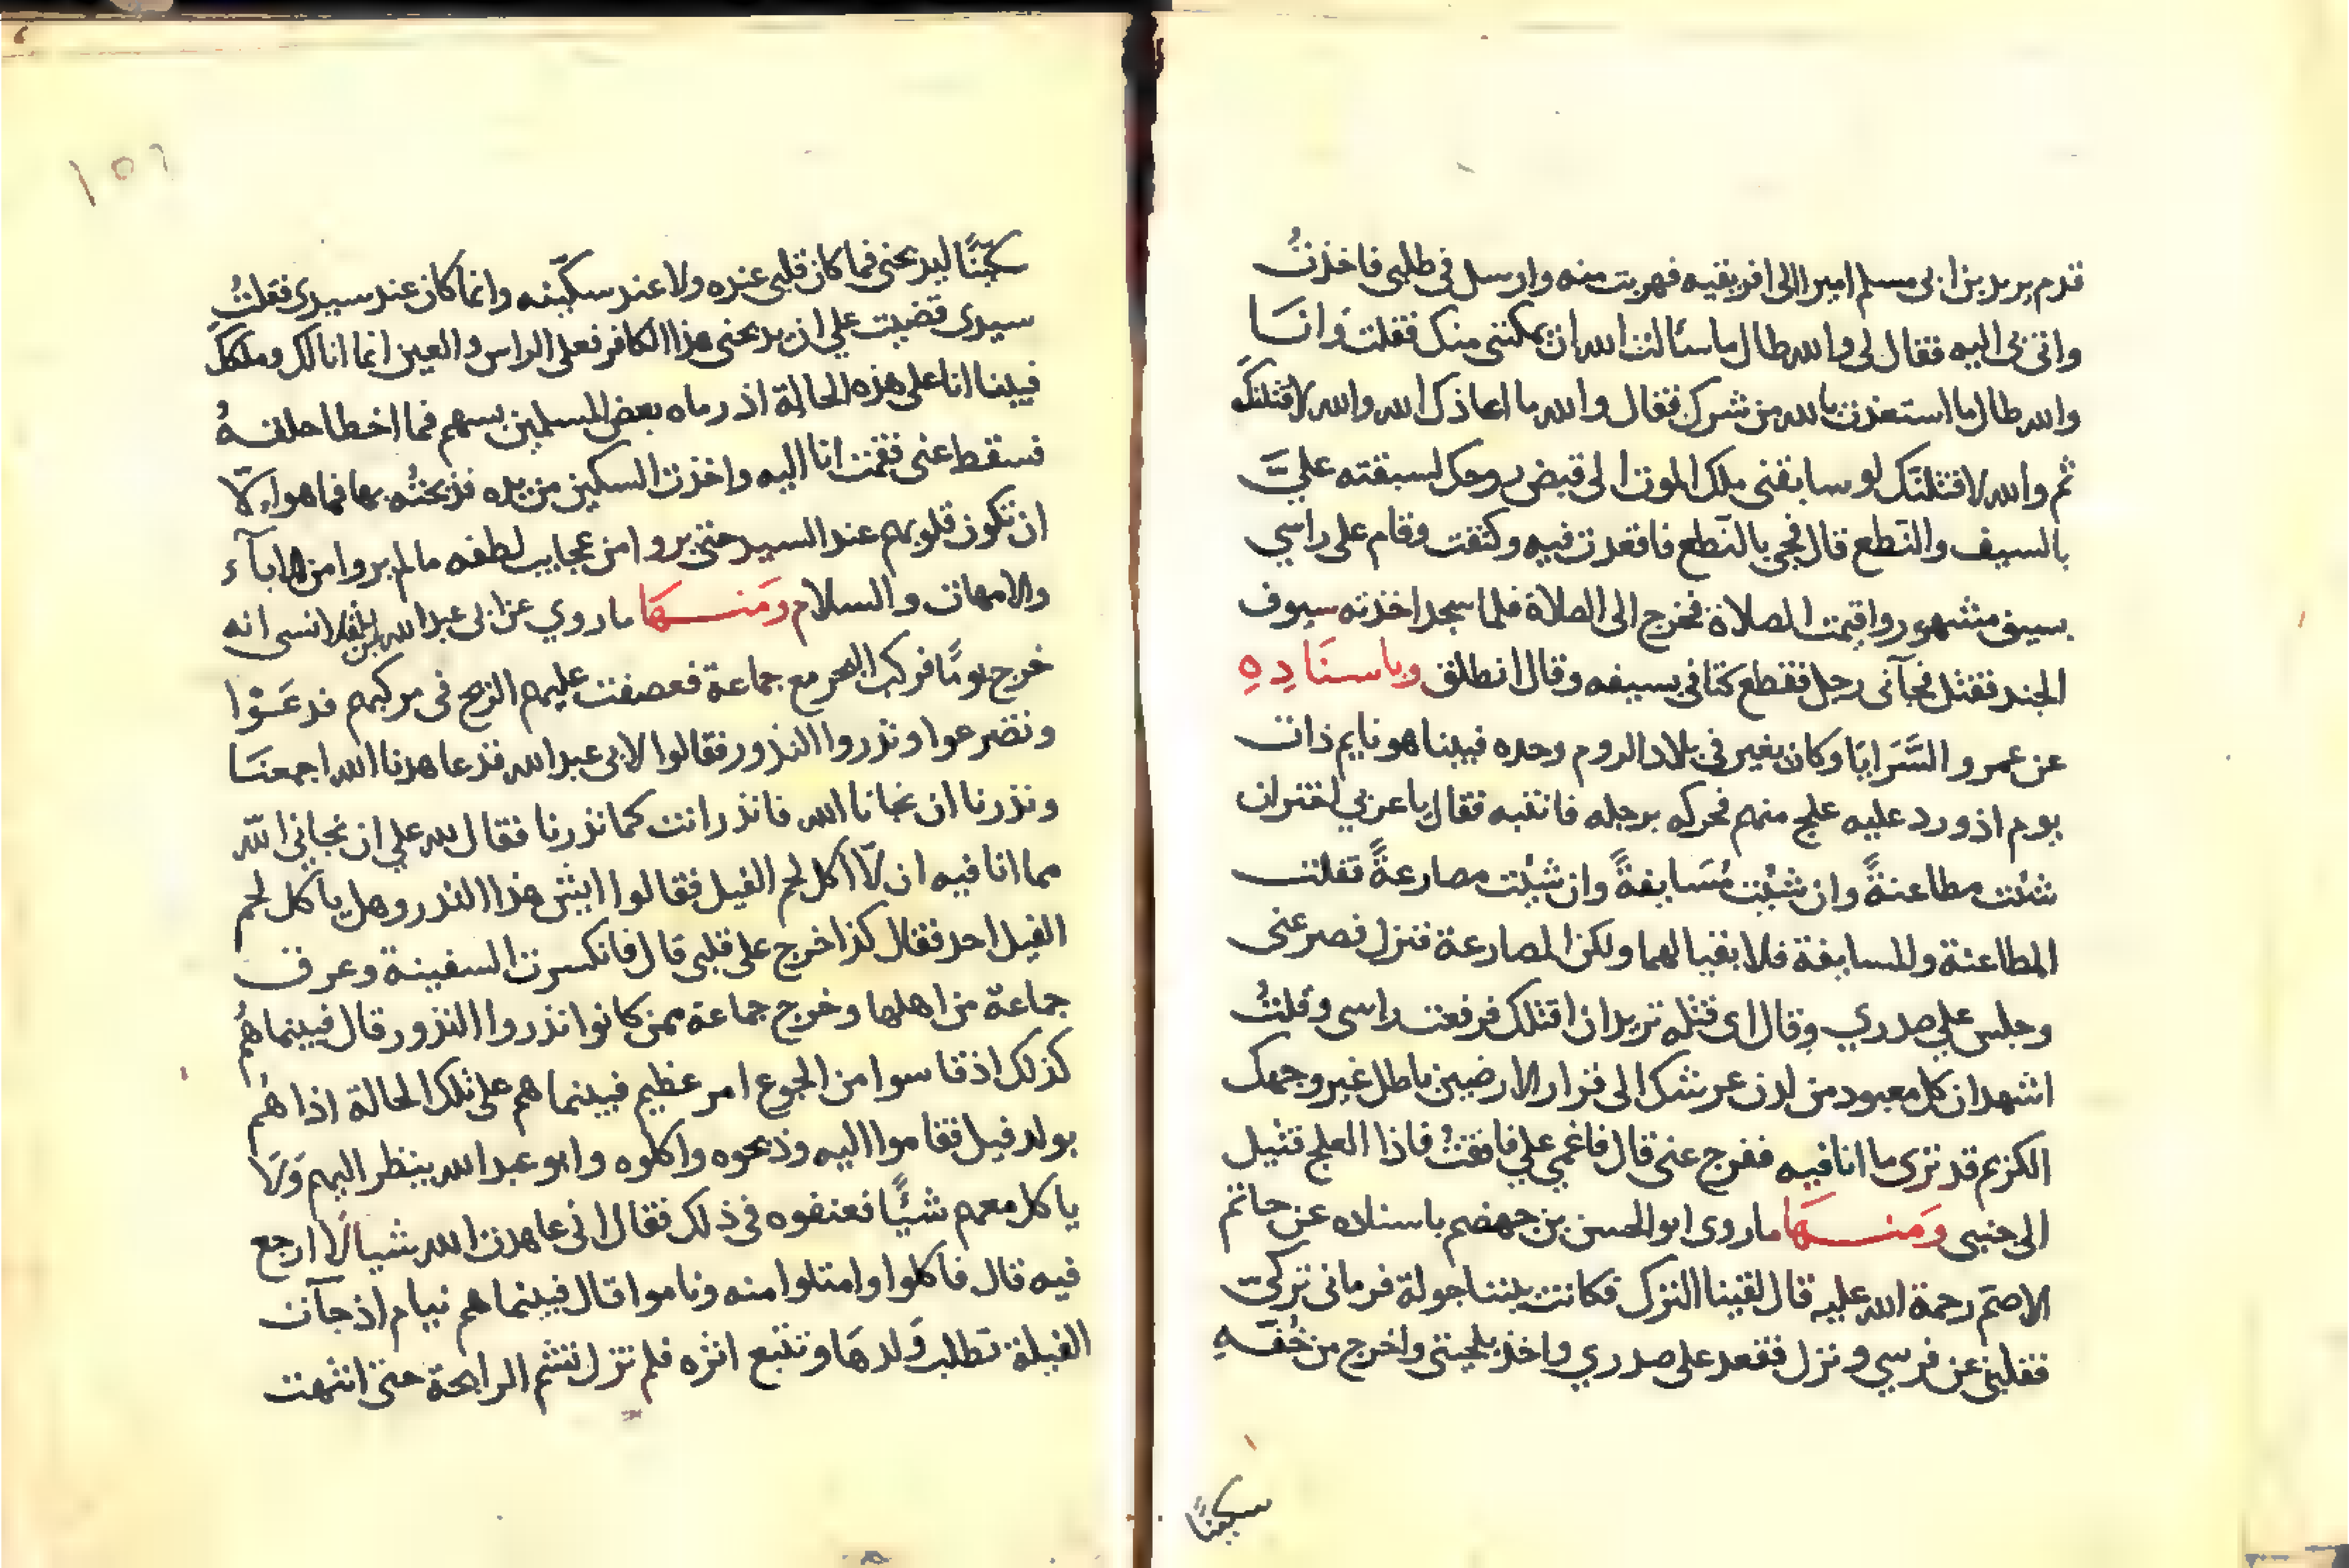 قدم يزيد بن ابي مسلم اميرا الى افريقيه فهربت منه وارسل في طلبي فاخذتُ
واتي بي اليه فقال لي والله طال ما سئالت الله ان يمكنني منك فقلت وَانَـا
والله طال ما استعذت بالله من شرك فقال والله ما اعاذك الله والله لاقتلنكَ
ثم والله لاقتلنّك لو سابقني ملك الموت الى قبض روحك لسبقته عليَّ
بالسيف والنّطع قال فجي بالنّطع فاقعدت فيه وكتفت وقام على راسي
بسيف مشهور واقيمت الصلاة فخرج الى الصلاة فلما سجد اخذته سيوف
الجند فقتل فجآني رجل فقطع كتافي بسيفه وقال انطلق وباسـنَادِهِ
عن عمرو السَّرَايَا وكان يغير في بلاد الروم وحده فبينا هو نايم ذات
يوم اذ ورد عليه علج منهم فحركه برجله فانتبه فقال يا عربي اختر ان
شئت مطاعنةً وان شئت مُسَايفةً وان شئت مصارعةً فقلت
المطاعنة والمسايفة فلا بقيا لهما ولكن المصارعة فنزل فصرعني
وجلس علي صدري وقال اي قتله تريد ان اقتلك فرفعت راسى وقلتُ
اشهد ان كل معبود من لدن عرشك الى قرار الارضين باطل غير وجهك
الكريم قد ترى ما انا فيه ففرج عني قال فاغمي علي فافقتُ فاذا العلج قتيل
الى جنبى وَمنـهَا ما روى ابو الحسن بن جهضم باسناده عن حاتم
الاصمّ رحمة الله عليه قال لقينا الترك فكانت بيننا جولة فرماني تركيّ
فقلبني عن فرسي ونزل فقعد على صدري واخذ بلحيتي واخرج من خُفّهِ
سكينًا
١٥٦
سكينًا ليذبحني فما كان قلبي عنده ولا عند سكّينه وانما كان عند سيدى فقلتُ
سيدى قضيت علي ان يذبحنى هذا الكافر فعلى الراس والعين انما انا لك وملككَ
فبينا انا على هذه الحالة اذ رماه بعض المسلمين بسهم فما اخطا حلقـهُ
فسقط عني فقمت انا اليه واخذت السكين من يده فذبحتُه بها فما هو اِلّا
ان تكون قلوبهم عند السيد حتى يروا من عجايب لطفه ما لم يروا من الابآء
والامهات والسلام وَمنـهَا ما روي عن ابى عبد الله بن القلانسى انه
خرج يومًا فركب البحر مع جماعة فعصفت عليهم الريح في مركبهم فدعَـوْا
وتضرعوا ونذروا النذور فقالوا لابي عبد الله قد عاهدنا الله اجمعنَـا
ونذرنا ان نجانا الله فانذر انت كما نذرنا فقال لله علي ان نجاني اللّه
مما انا فيه ان لّا اكل لحم الفيل فقالوا ايش هذا النذر وهل ياكل لحم
الفيل احد فقال كذا خرج على قلبي قال فانكسرت السفينة وغرق
جماعة من اهلها وخرج جماعة ممن كانوا نذروا النذور قال فبينما هُم
كذلك اذ قاسوا من الجوع امر عظيم فبينما هم على تلك الحالة اذا هُم
بولد فيل فقاموا اليه وذبحوه واكلوه وابو عبد الله ينظر اليهم وَلَا
ياكل معهم شيئًا فعنفوه في ذلك فقال اني عاهدت الله شيا لا ارجع
فيه قال فاكلوا وامتلوا منه وناموا قال فبينما هم نيام اذ جآت
الفيلة تطلب وَلدهَا وتتبع اثره فلم تزل تشم الرايحة حتى انتهت